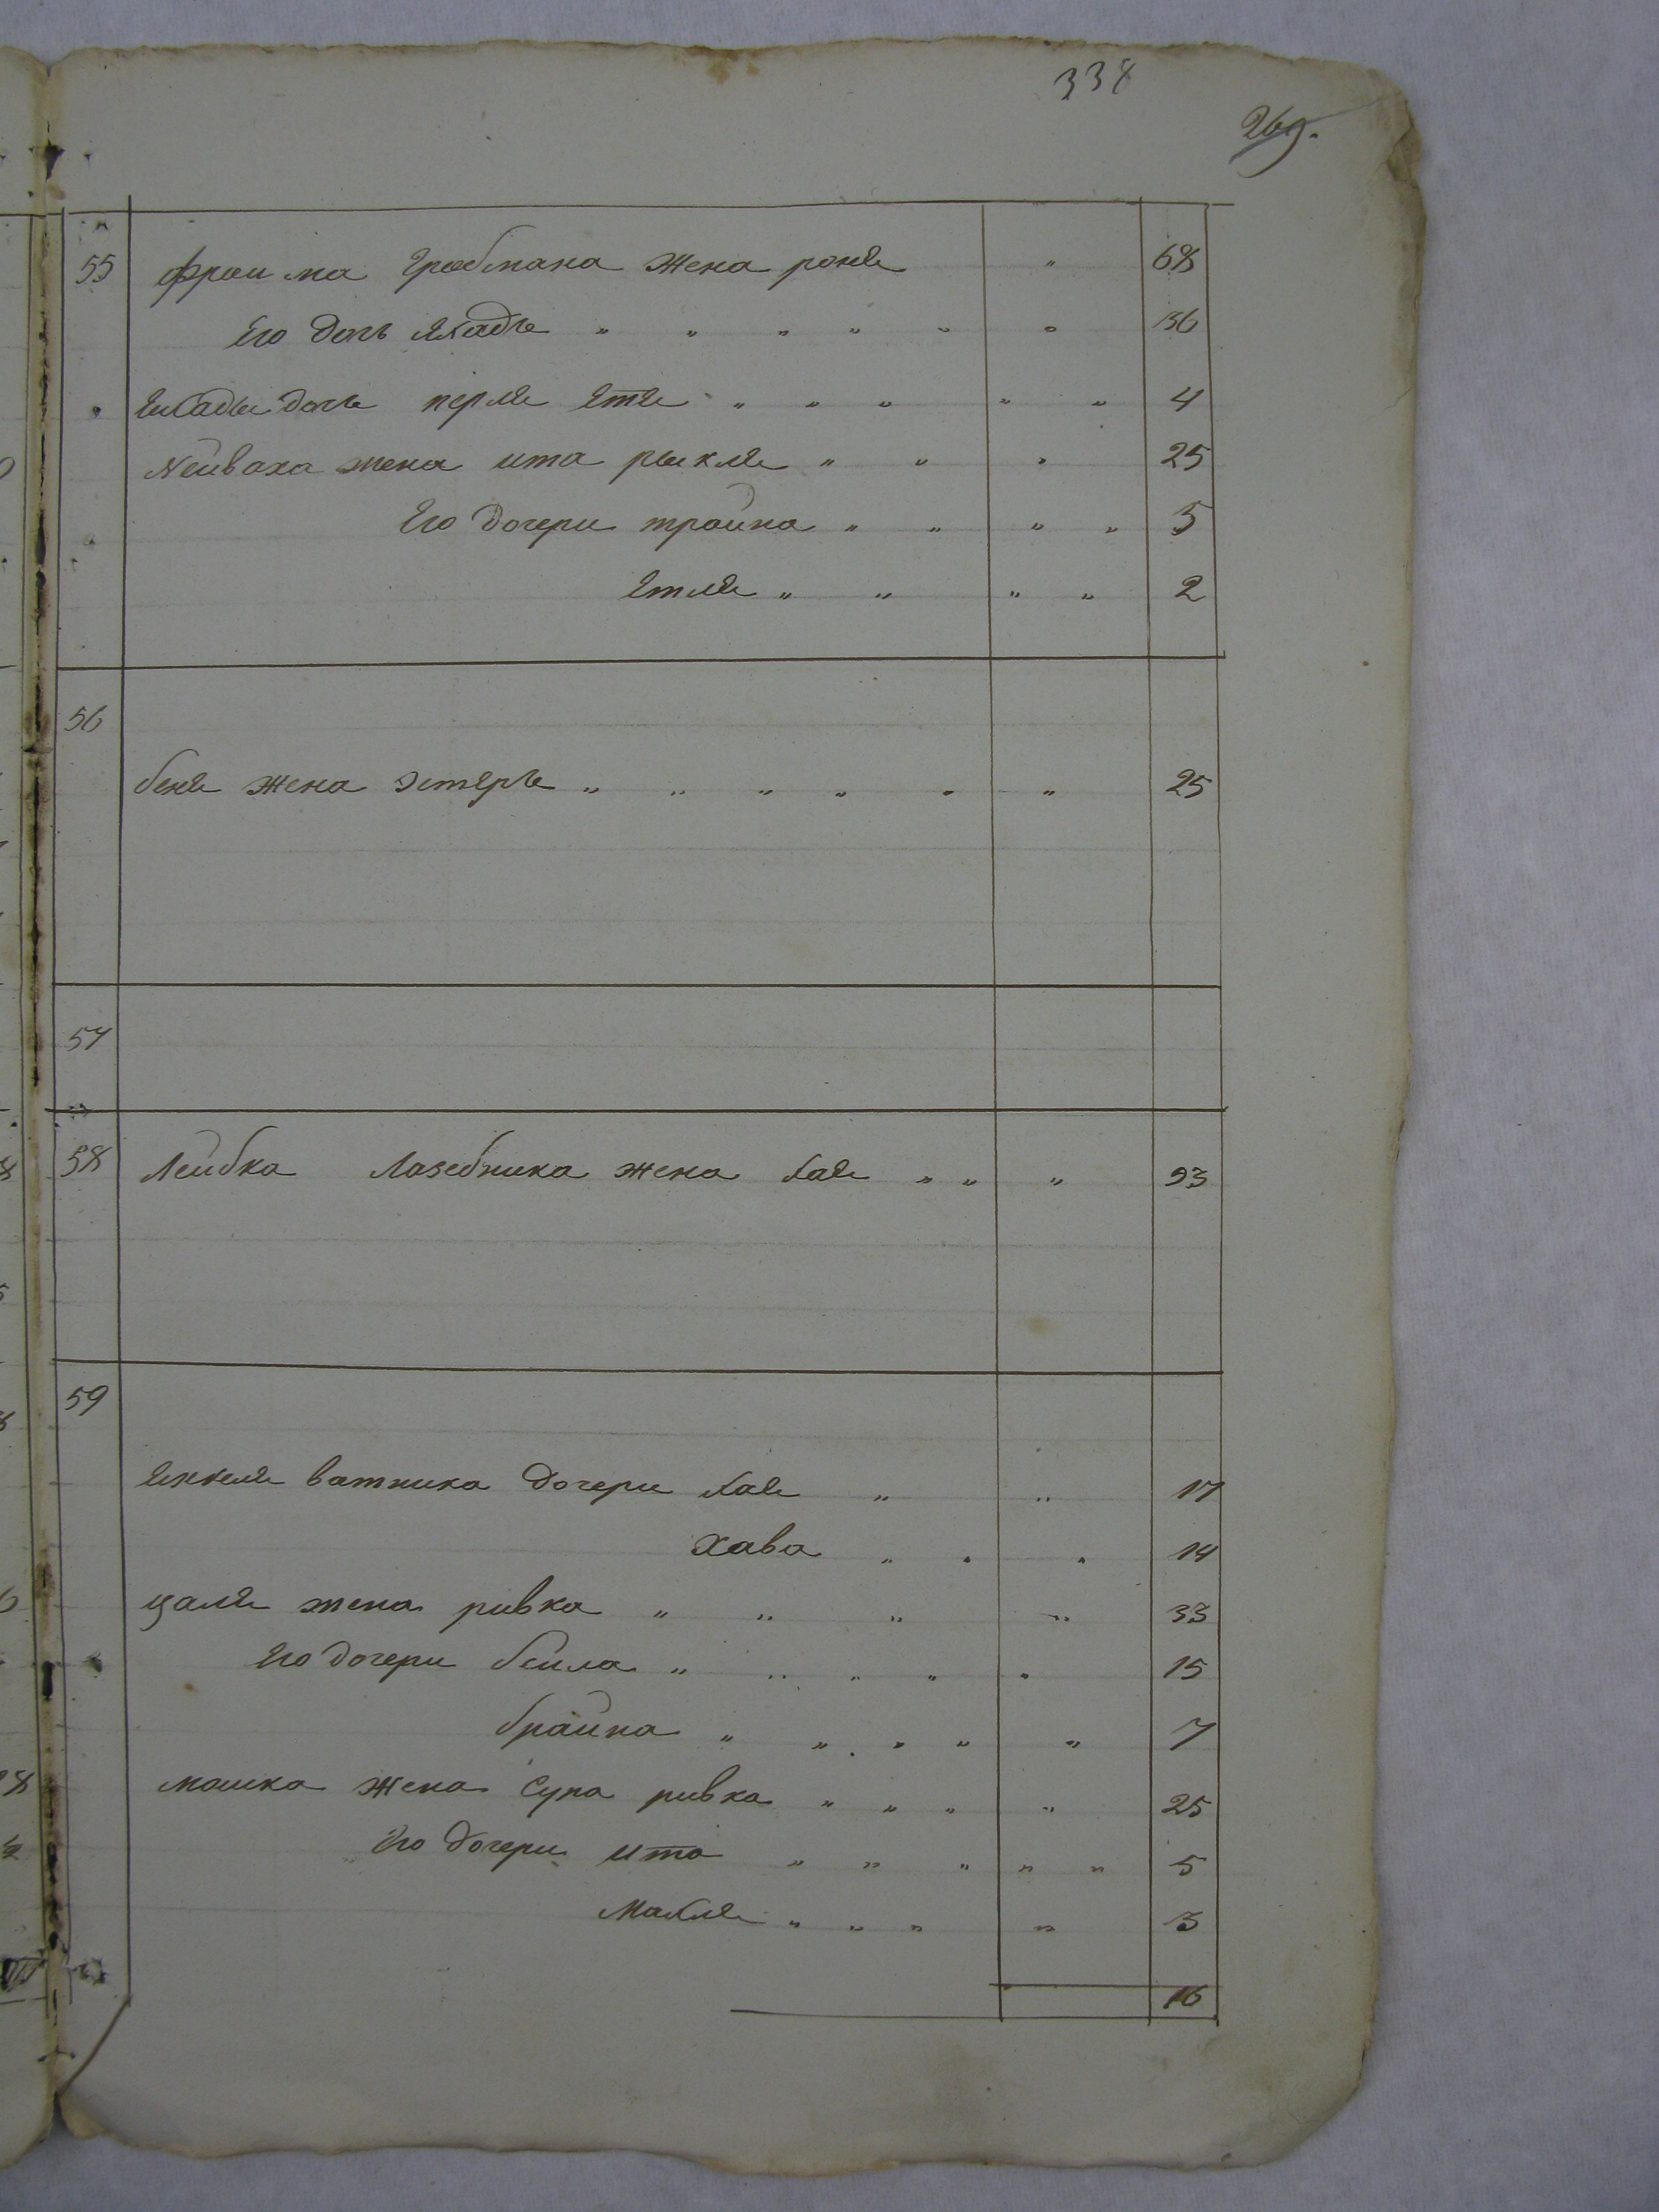 338
269.
55 Фроима Гробмана жена роня " 68
Его дочь " " " " " " 36
дочь перля Етя " " " " " 4
жена ита рыкля " " " 25
Его дочери траина " " " " 5
Етля " " " " 2
56
беня жена Эстеръ " " " " " " 25
57
58 Леибка Лазебника жена хая " " " 93
59
Янкеля ватника дочери хая " " 17
Хава " " " 14
цаля жена ривка " " " " 33
Его дочери беила " " " " " 15
браина " " " " " 7
мошка жена Сура ривка " " " " 25
Его дочери ита " " " " " 5
Махля " " " " 3
16